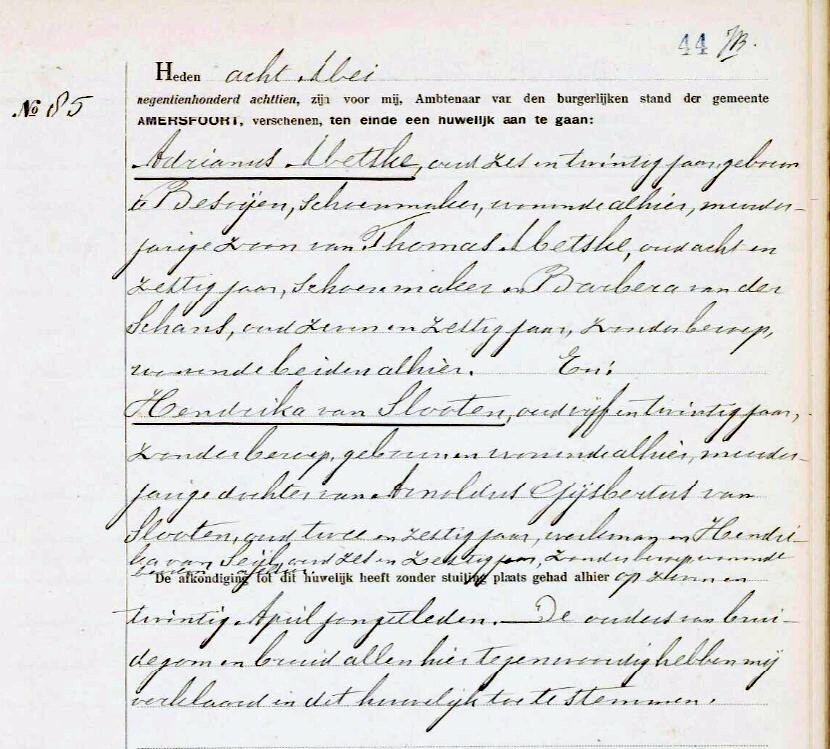 44 B.
Heden acht Mei
No 85
negentienhonderd achttien, zijn voor mij, Ambtenaar van den burgerlijken stand der gemeente
AMERSFOORT, verschenen, ten einde een huwelijk aan te gaan:
Adrianus Metske, oud zes en twintig jaar, geboren
te Besoijen, schoenmaker, wonende alhier, meerder-
jarige zoon van Thomas Metske, oud acht en
zestig jaar, schoenmaker en Barbera van der
Schans, oud zeven en zestig jaar, zonder beroep,
wonende beiden alhier. En:
Hendrika van Slooten, oud vijf en twintig jaar,
zonder beroep, geboren en wonende alhier, meerder-
jarige dochter van Arnoldus Gijsbertus van
Slooten, oud twee en zestig jaar, werkman en Hendri-
ka van Seijl, oud zes en zestig jaar, zonder beroep wonende
beiden alhier
De afkondiging tot dit huwelijk heeft zonder stuiting plaats gehad alhier op zeven en
twintig April jongstleden. De ouders van brui-
degom en bruid allen hier tegenwoordig hebben mij
verklaard in dit huwelijk toe te stemmen.